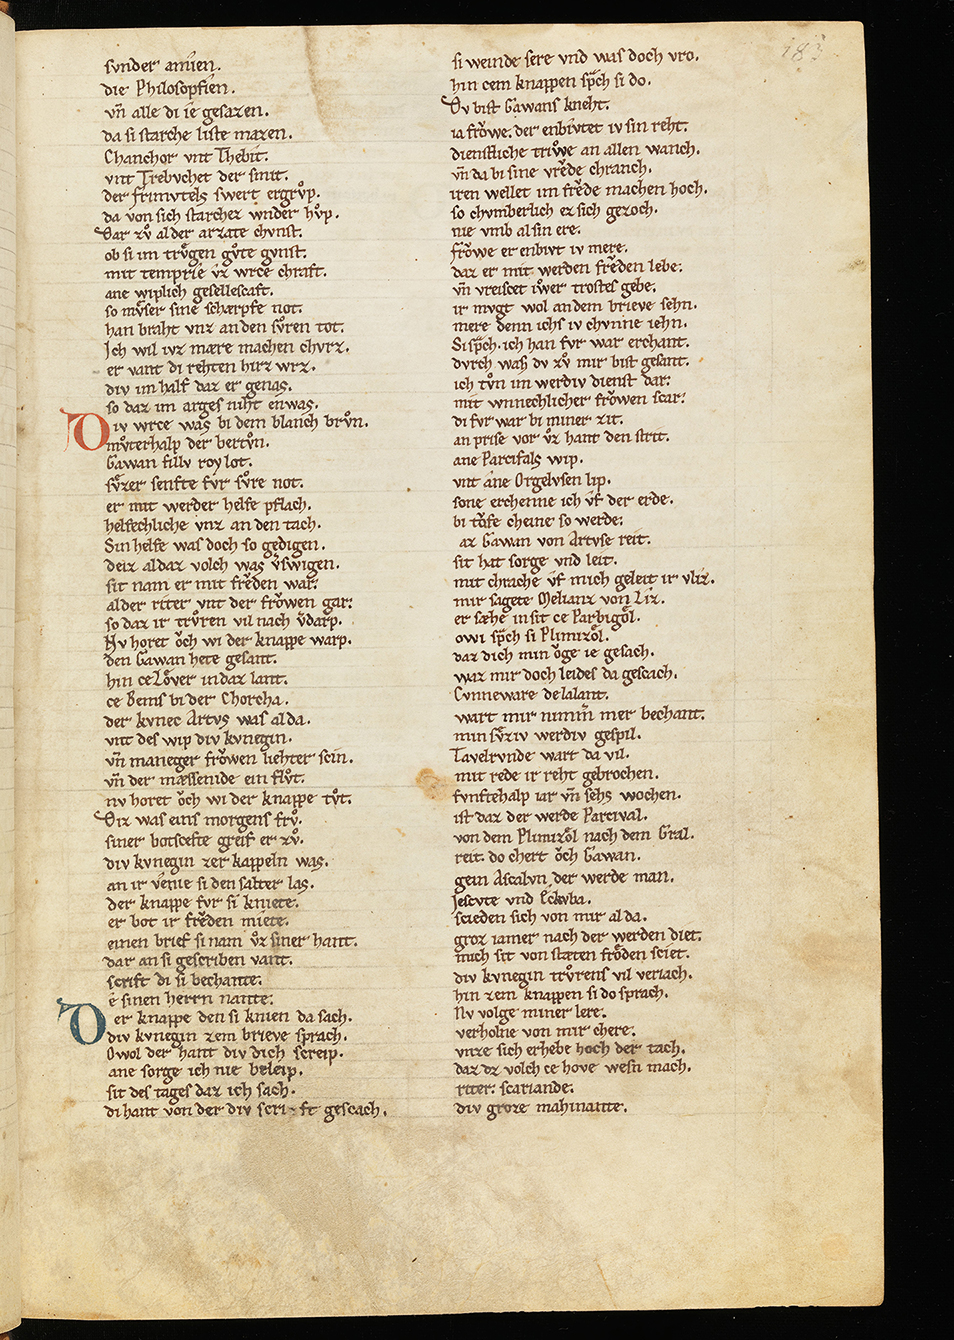 svnder amuͤen.
die Philosopfien.
vn̄ alle di ie gesazen.
da si starche liste mazen.
Chanchor vnt Thebit.
vnt Trebvchet der smit.
der frimvtels swert ergrvͦp.
da von sich starchez wnder hvͦp.
Dar zvͦ al der arzate chvnst.
ob si im trvͤgen gvͦte gvnst.
mit temprie v̂z wrce chraft.
ane wiplich gesellescaft.
so mvͤser sine schærpfe not.
han braht vnz an den svͦren tot.
Ich wil ivz mære machen chvrz.
er vant di rehten hirz wrz.
div im half daz er genas.
so daz im arges niht enwas.
Div wrce was bi dem blanch brvͦn.
mvͦterhalp der bertvͦn.
Gawan fillv roy lot.
svͤzer senfte fvr svͦre not.
er mit werder helfe pflach.
helfechliche vnz an den tach.
Sin helfe was doch so gedigen.
deiz al daz volch was v̄swigen.
sit nam er mit frevden war:
al der riter vnt der frowen gar:
so daz ir trvͦren vil nach v̄darp.
Nv horet och wi der knappe warp.
den Gawan hete gesant.
hin ce Lover in daz lant.
ce Bems bi der Chorcha.
der kvnec Artvs was al da.
vnt des wip div kvnegin.
vn̄ maneger frowen liehter scin.
vn̄ der mæssenide ein flvͦt.
nv horet och wi der knappe tvͦt.
Diz was eins morgens frvͦ.
siner botscefte greif er zvͦ.
div kvnegin zer kappeln was.
an ir venie si den salter las.
der knappe fvr si kniete.
er bot ir frevden miete.
einen brief si nam vͦz siner hant.
dar an si gescriben vant.
scrift di si bechante.
e sinen herrn nante:
Der knappe den si knien da sach.
div kvnegin zem brieve sprach.
Owol der hant div dich screip.
ane sorge ich nie beleip.
sit des tages daz ich sach.
di hant von der div scrift gescach.
si weinde sere vnd was doch vro.
hin cem knappen sp̄ch si do.
Dv bist Gawans kneht.
ia frowe. der enbivtet iv sin reht.
dienstliche triwe an allen wanch.
vn̄ da bi sine vrevde chranch.
iren wellet im frevde machen hoch.
so chvmberlich ez sich gezoch.
nie vmb al sin ere.
frowe er enbivt iv mere.
daz er mit werden frevden lebe:
vn̄ vreiscet iwer trostes gebe.
ir mvgt wol an dem brieve sehn.
mere denn ichs iv chvnne iehn.
Si sp̄ch. ich han fvr war erchant.
dvrch waz dv zvͦ mir bist gesant.
ich tvͦn im werdiv dienst dar:
mit wnnechlicher frowen scar:
di fvr war bi miner zit.
an prise vor vͦz hant den strit.
ane Parcifals wip.
vnt ane Orgelvsen lip.
sone erchenne ich vf der erde.
bi tofe cheine so werde:
az Gawan von Artvse reit.
sit hat sorge vnd leit.
mit chrache vf mich geleit ir vliz.
mir sagete Melianz von Liz.
er sæhe in sit ce Barbigol.
owi sp̄ch si Plimizol.
daz dich min oge ie gesach.
waz mir doch leides da gescach.
Cvnneware de lalant.
wart mir nimm̄ mer bechant.
min svͤziv werdiv gespil.
Tavelrvnde wart da vil.
mit rede ir reht gebrochen.
fvnftehalp iar vn̄ sehs wochen.
ist daz der werde Parcival.
von dem Plimizol nach dem Gral.
reit. do chert och Gawan.
gein Ascalvn der werde man.
Jescvte vnd Eckvba.
scieden sich von mir al da.
groz iamer nach der werden diet.
mich sit von stæten froden sciet.
div kvnegin trvͦrens vil veriach.
hin zem knappen si do sprach.
Nv volge miner lere.
verholne von mir chere.
vnze sich erhebe hoch der tach.
daz dz volch ce hove wesn mach.
riter: scariande:
div groze mahinante.
183